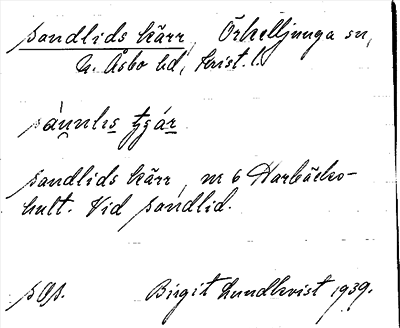 sandlids kärr, Örkelljunga sn,
N. Åsbo hd, Krist. l.
sandlids kärr, nr 6 Harbäcks-
hult. Vid sandlid.
Birgit Lundkvist 1939.